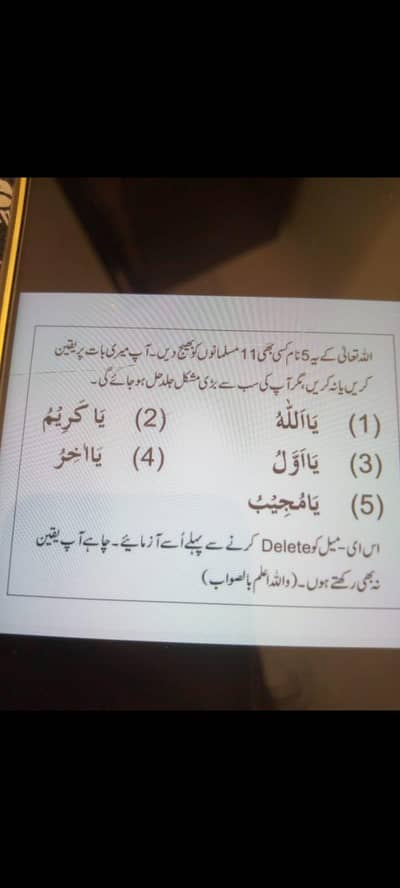 اللہ تعالیٰ کے یہ 5 نام کسی بھی 11 مسلمانوں کو بھیج دیں۔ آپ میری بات پر یقین
کریں یا نہ کریں، مگر آپ کی سب سے بڑی مشکل جلد حل ہو جائے گی۔
(1) یَا اَللّٰهُ (2) یَا کَرِیْمُ
(3) یَا اَوَّلُ (4) یَا اٰخِرُ
(5) یَا مُجِیْبُ
اس ای-میل کو Delete کرنے سے پہلے اُسے آزمائیے۔ چاہے آپ یقین
نہ بھی رکھتے ہوں۔ (واللہ اعلم بالصواب)